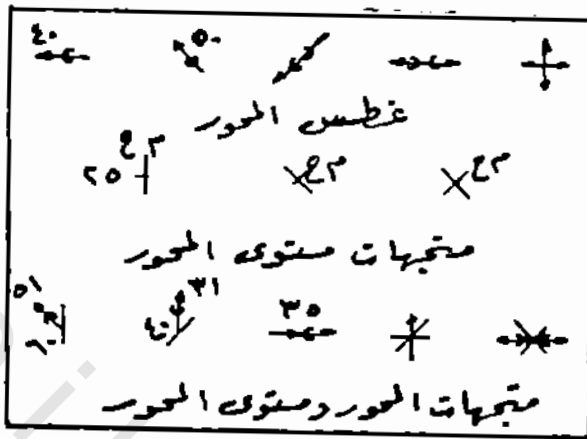 ٤٠ ٥٠
غطس المحور
٢٥ م ع م ع م ع
متجهات مستوى المحور
٥١ ٦٠ ٤٠ ٣١ ٣٥
متجهات المحور ومستوى المحور